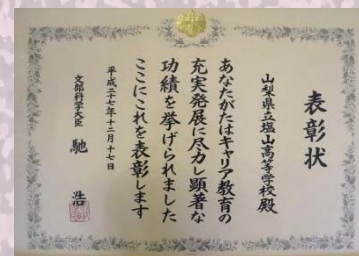 表彰状
山梨県立塩山高等学校殿
あなたがたはキャリア教育の
充実発展に尽力し顕著な
功績を挙げられました
ここにこれを表彰します
平成二十七年十二月十七日
文部科学大臣 馳 浩